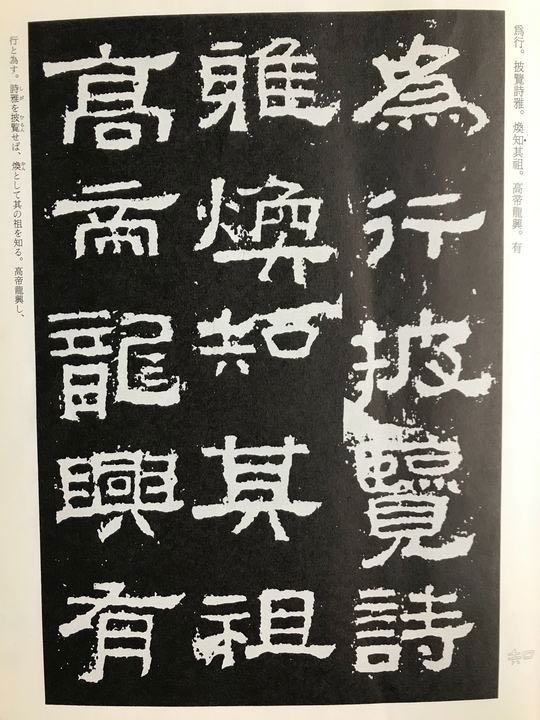 爲行。披覽詩雅。煥知其祖。高帝龍興。有
爲行披覽詩
雅煥知其祖
高帝龍興有
行と為す。詩雅を披覧せば、煥として其の祖を知る。高帝龍興し、